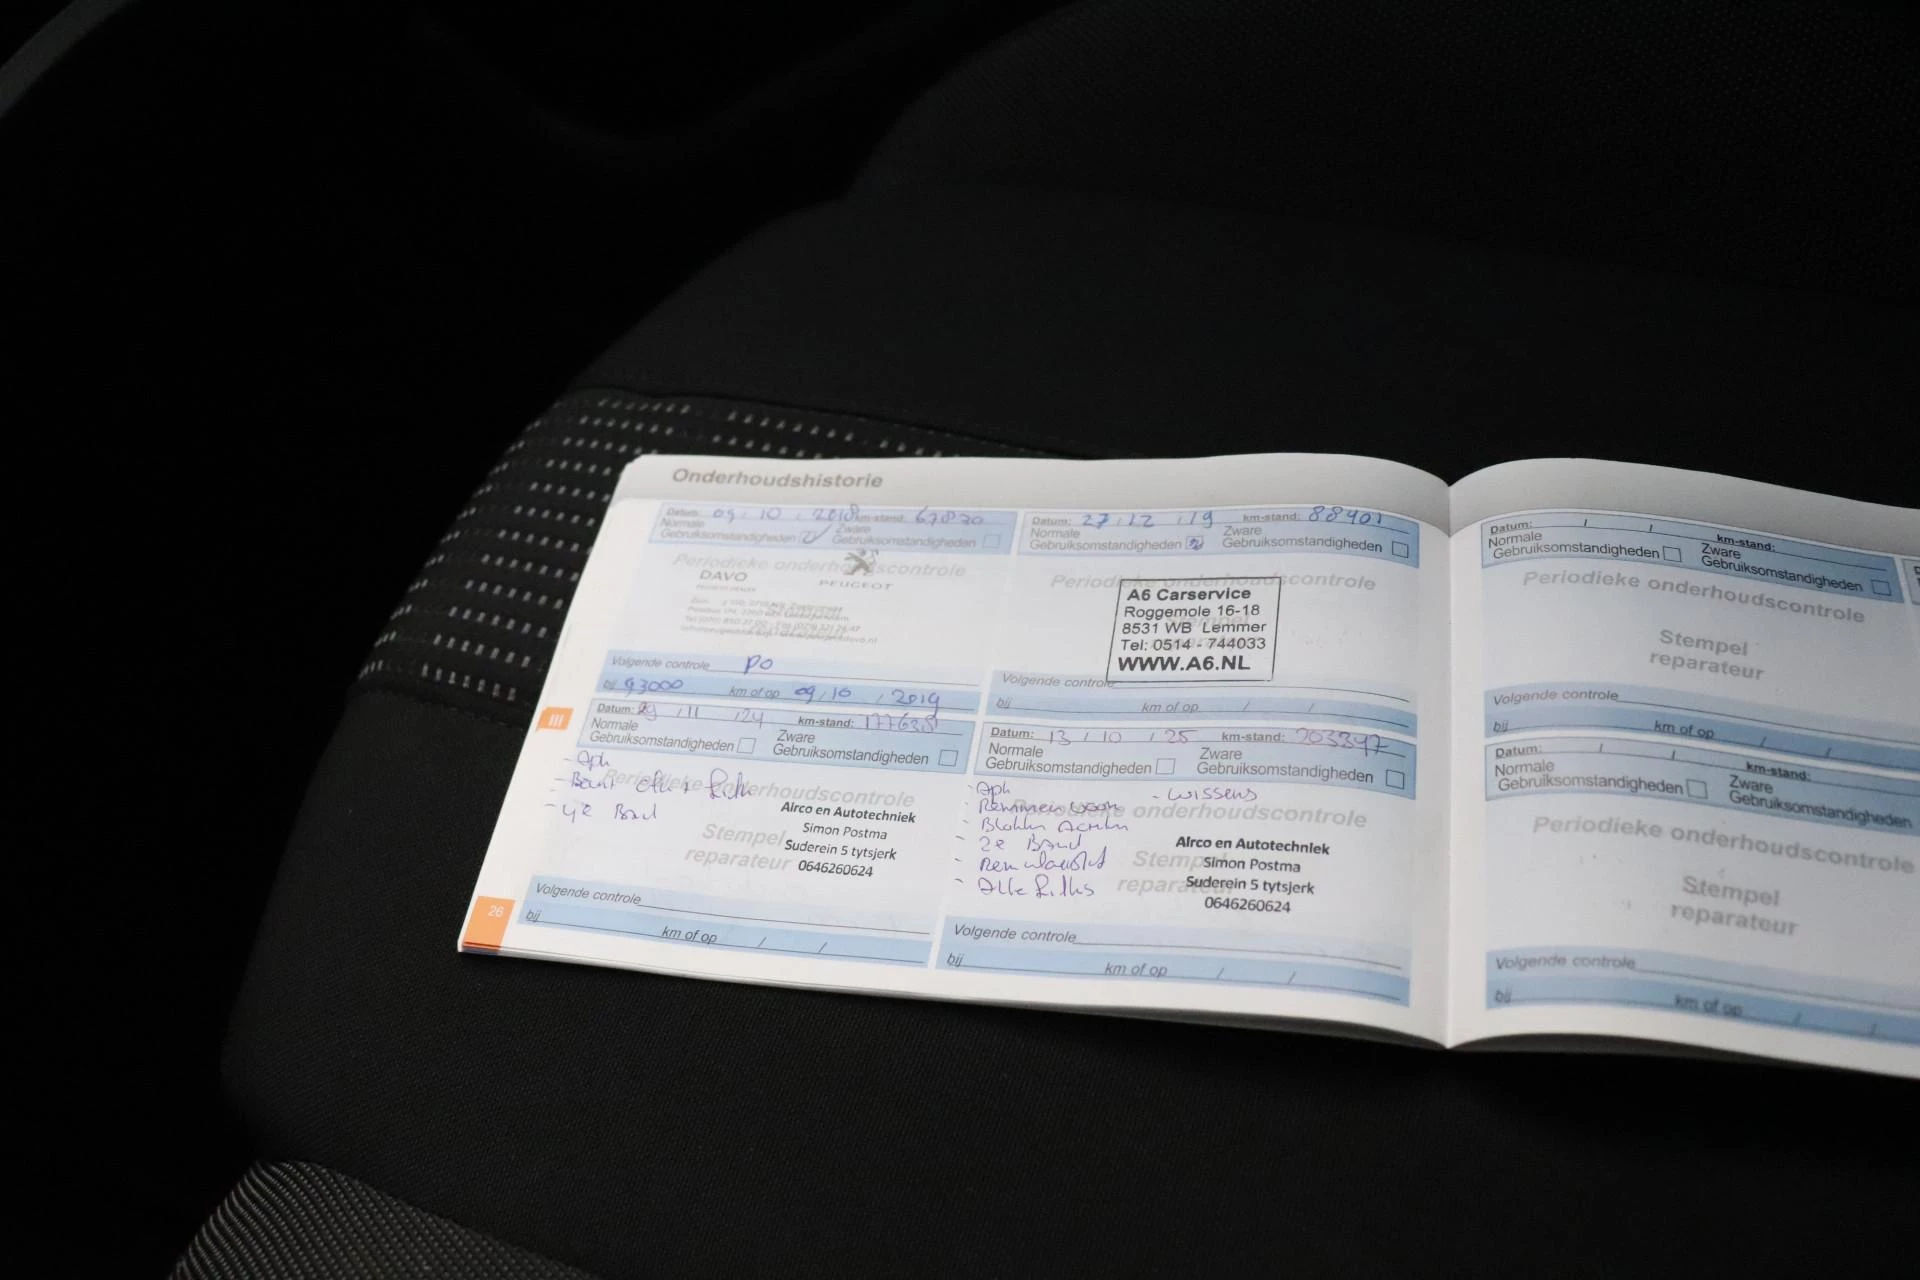 Onderhoudshistorie
Datum: 09 / 10 / 2018 km-stand: 67870
Normale Gebruiksomstandigheden Zware Gebruiksomstandigheden
Periodieke onderhoudscontrole
DAVO
PEUGEOT
Volgende controle PO
bij 93000 km of op 09 / 10 / 2019
Datum: 27 / 12 / 19 km-stand: 88401
Normale Gebruiksomstandigheden Zware Gebruiksomstandigheden
Periodieke onderhoudscontrole
A6 Carservice
Roggemole 16-18
8531 WB Lemmer
Tel: 0514 - 744033
WWW.A6.NL
Volgende controle
bij km of op / /
Datum: 29 / 11 / 24 km-stand: 177638
Normale
Gebruiksomstandigheden
Zware
Gebruiksomstandigheden
- Aph
Periodieke onderhoudscontrole
- 4x Band
Stempel
reparateur
Airco en Autotechniek
Simon Postma
Suderein 5 tytsjerk
0646260624
Volgende controle
bij km of op / /
Datum: 13 / 10 / 25 km-stand: 203347
Normale
Gebruiksomstandigheden
Zware
Gebruiksomstandigheden
- Aph
- wissers
Periodieke onderhoudscontrole
- 2e Band
- Remvloeistof
- Alle Filters
Stempel
reparateur
Airco en Autotechniek
Simon Postma
Suderein 5 tytsjerk
0646260624
Volgende controle
bij km of op / /
III
26
Datum: / / km-stand:
Normale
Gebruiksomstandigheden
Zware
Gebruiksomstandigheden
Periodieke onderhoudscontrole
Stempel
reparateur
Volgende controle
bij km of op / /
Datum: / / km-stand:
Normale
Gebruiksomstandigheden
Zware
Gebruiksomstandigheden
Periodieke onderhoudscontrole
Stempel
reparateur
Volgende controle
bij km of op / /